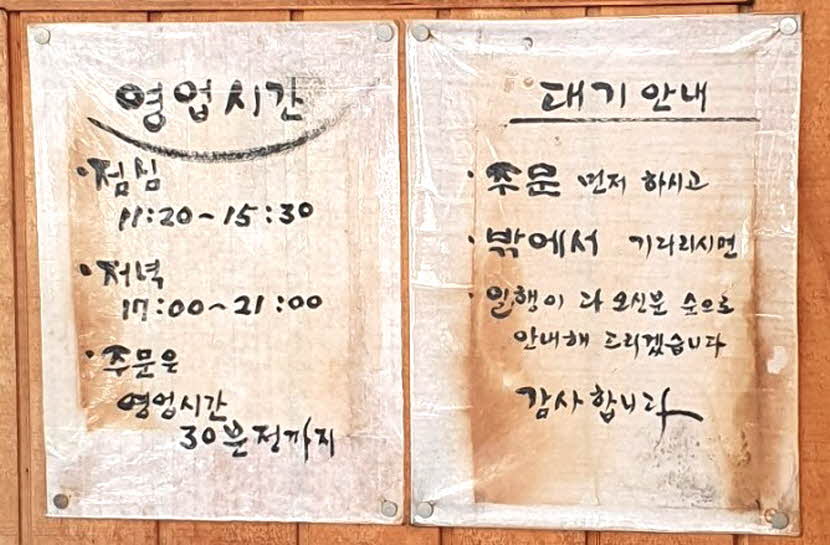 영업시간
·점심
11:20~15:30
·저녁
17:00~21:00
·주문은
영업시간
30분전까지
대기 안내
·주문 먼저 하시고
·밖에서 기다리시면
·일행이 다 오신분 순으로
안내해 드리겠습니다
감사합니다